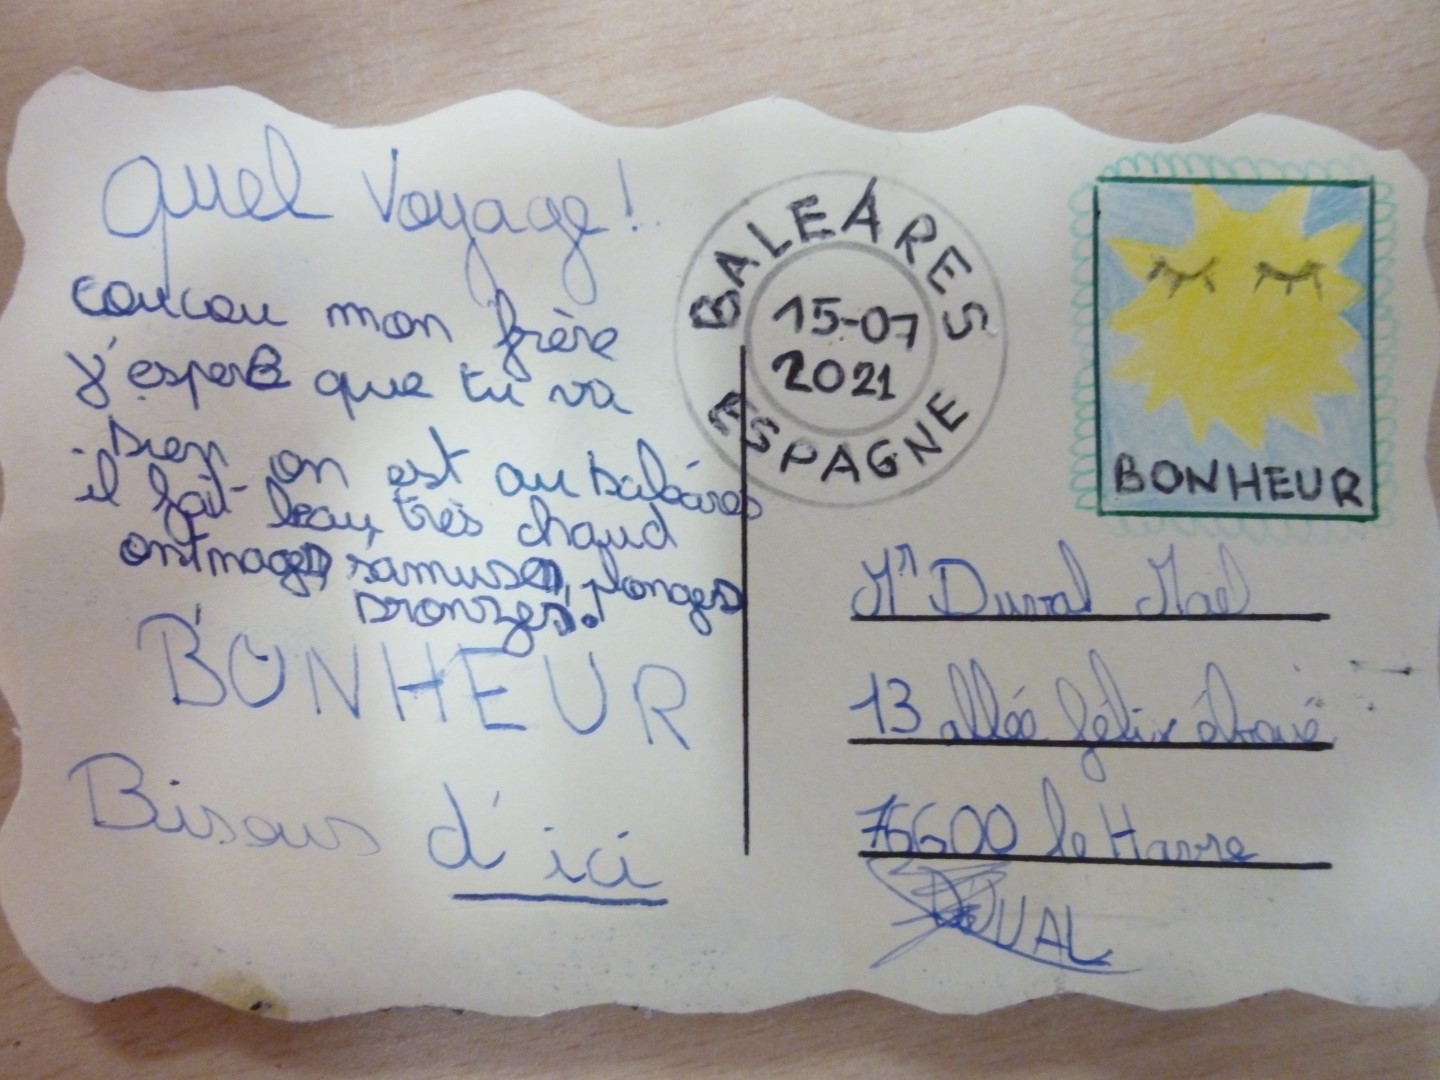 Quel Voyage !
coucou mon frère
j'espere que tu va
bien on est au baléares
il fait beau, très chaud
samuser, plonger
bronzer.
BONHEUR
Bisous d'ici
BALEARES
15-07
2021
ESPAGNE
BONHEUR
Mr Duval Maël
13 allée félix éboué
76600 le Havre
DUVAL